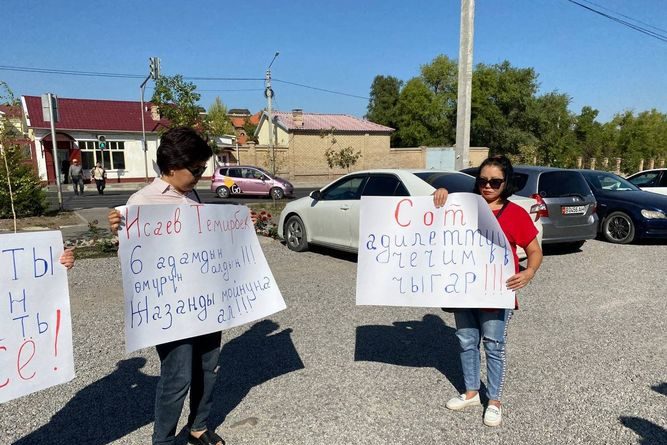 ТЫ
Н
ТЬ
СЁ!
Исаев Темирбек
6 адамдын
өмүрүн алдың!!!
Жазанды мойнуңа
ал!!!
Сот
адилеттүү
чечим
чыгар!!!